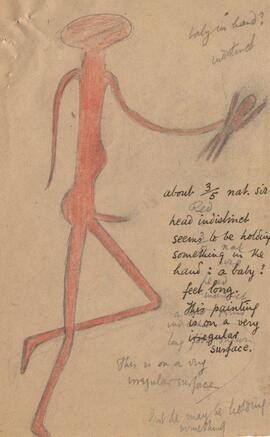 baby in hand?
indistinct
about 3/5 nat. siz
Red
head indistinct
seems to be holding
something in the
hand : a baby?
feet long.
This painting
is on a very
irregular
surface.
This is on a very
irregular surface
But he may be holding
something